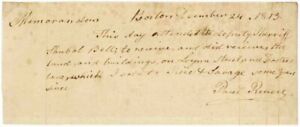 Memorandum Boston December 24 1813
This day attended deputy Sheriff
Bell to receive, and did receive the
land and buildings, on Lynn Street and
which I sold to & Savage some years
since
Paul Revere